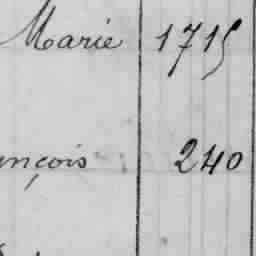 Marie 1715
nçois 240